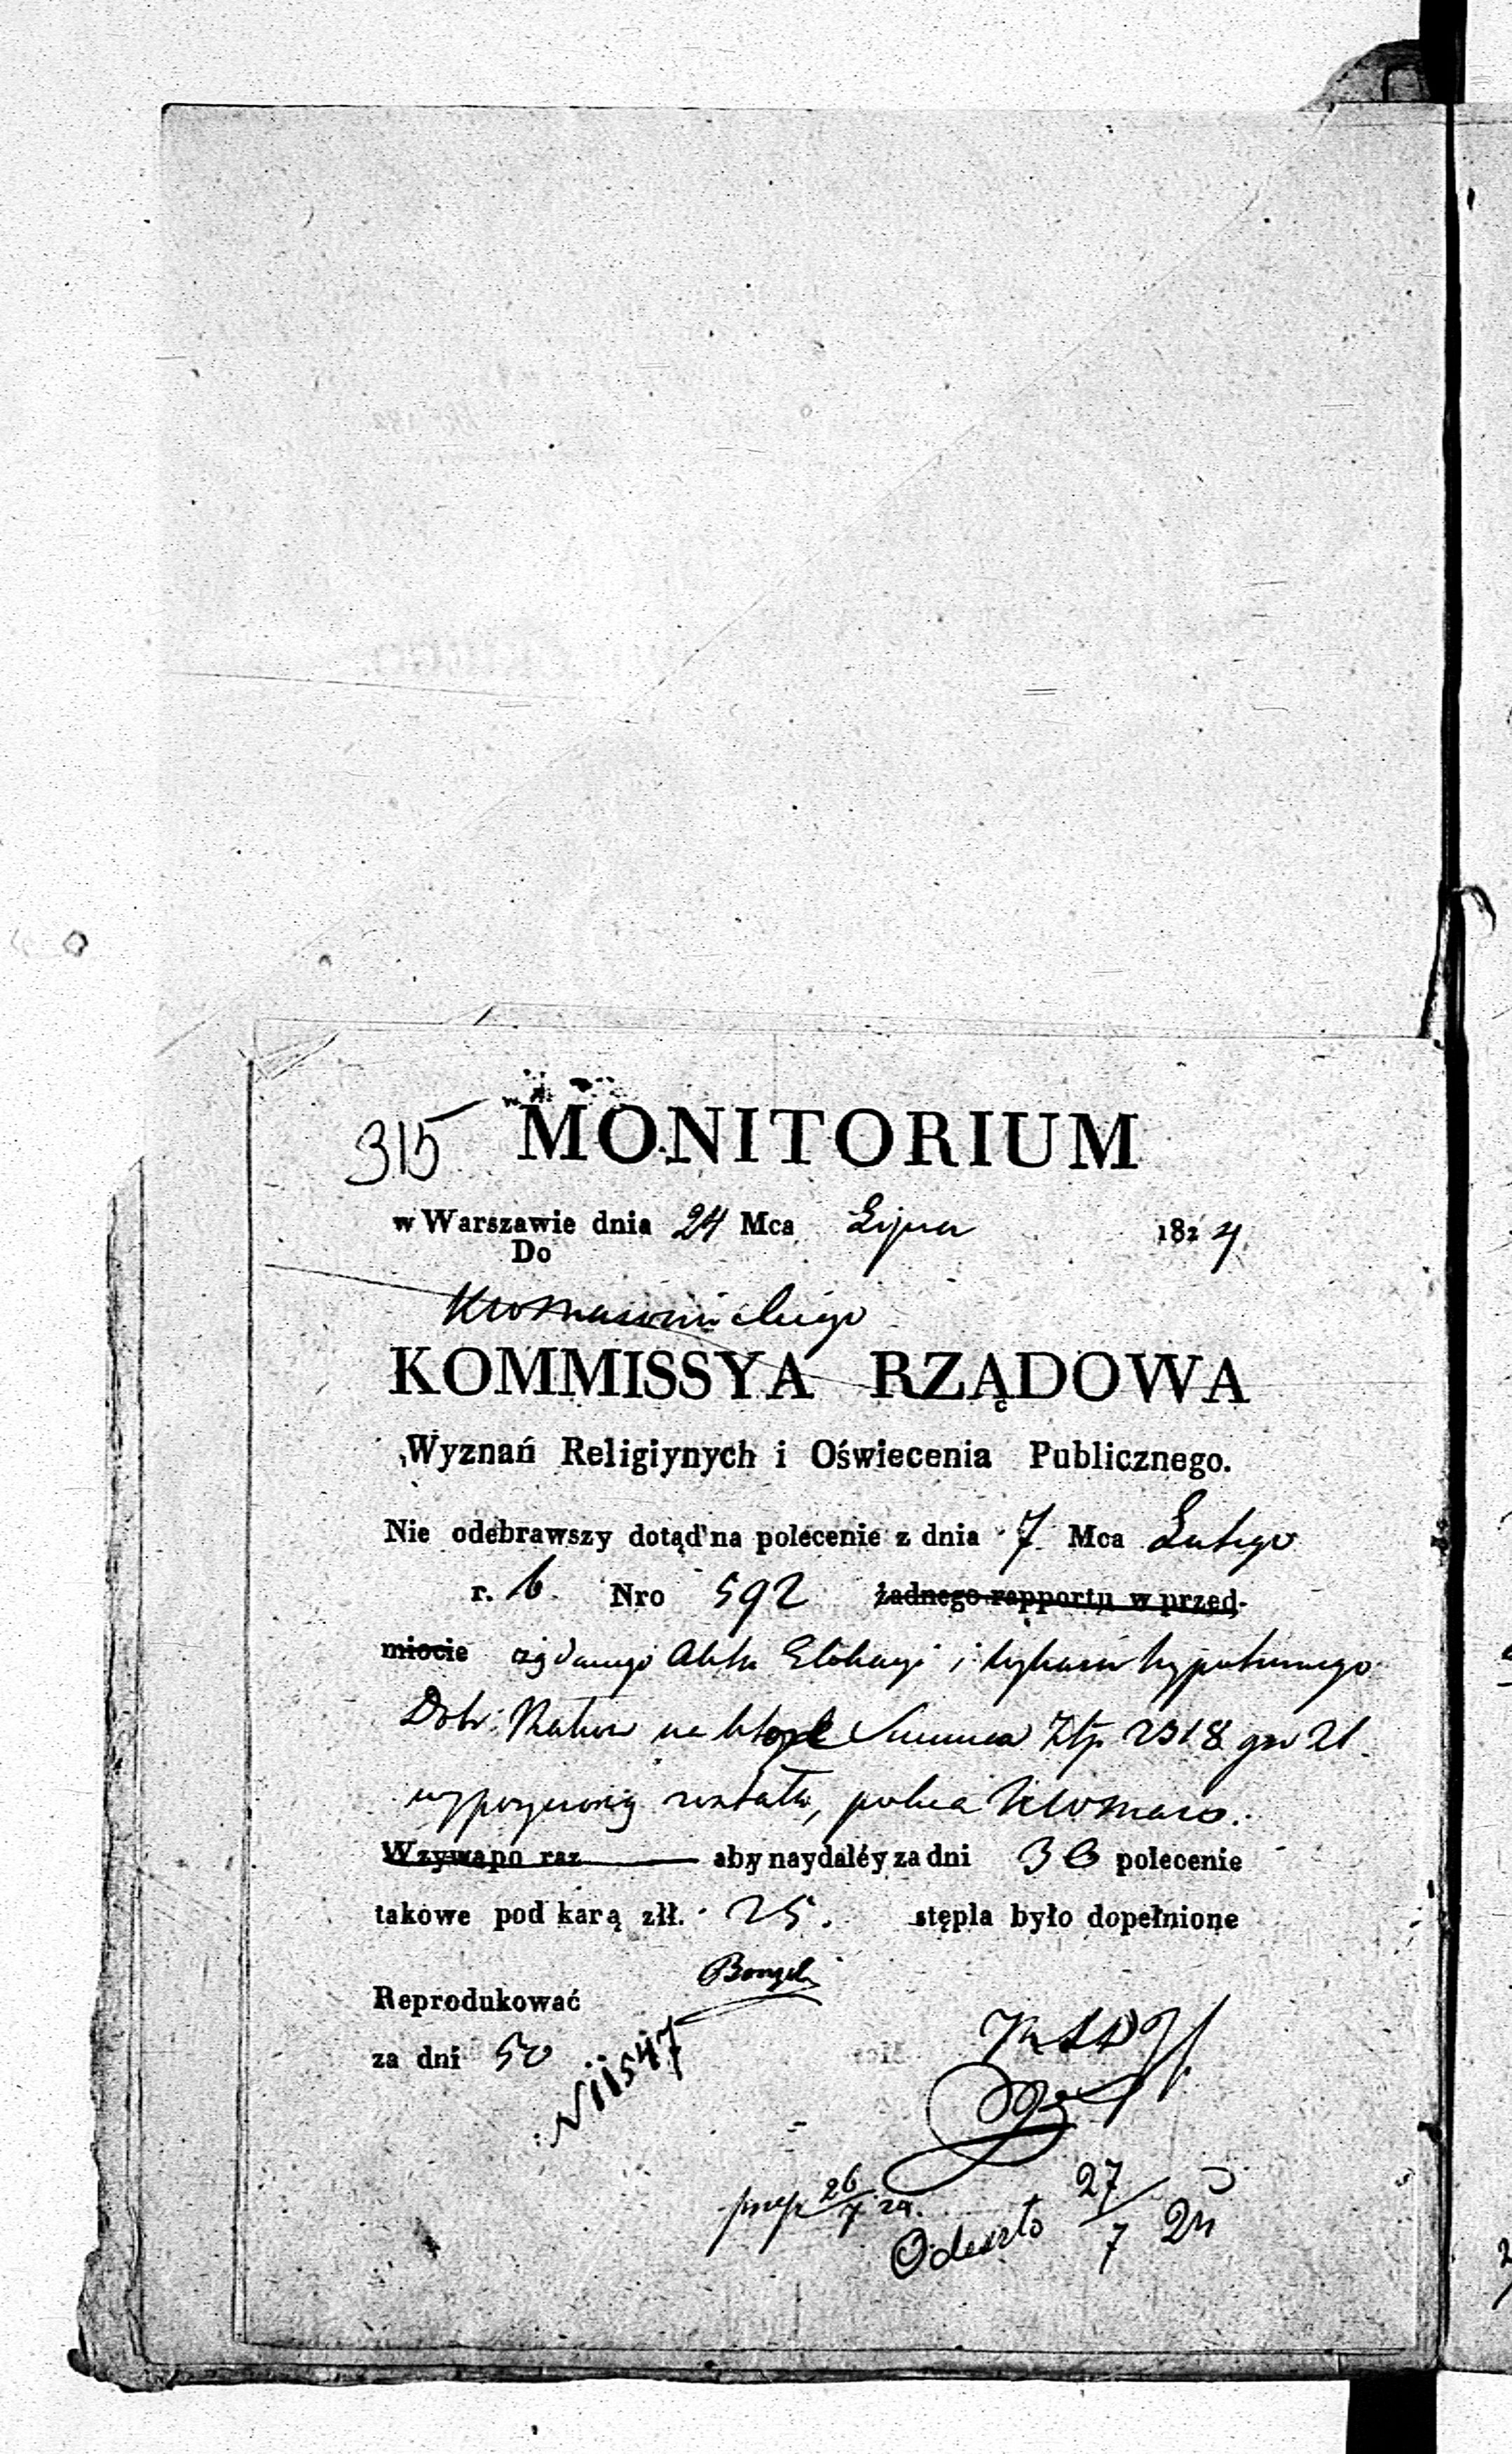 315 MONITORIUM
w Warszawie dnia 24 Mca Lipca 1824
Do
KOMMISSYA RZĄDOWA
Wyznań Religiynych i Oświecenia Publicznego.
Nie odebrawszy dotąd na polecenie z dnia 7 Mca Lutego
r. b. Nro 592 żadnego rapportu w przed-
miocie żądanego Aktu Elokacyi i wykazu hypotecznego
Dóbr na Summa Złp. 2318 gr 21
została, poleca
Wzywa po raz aby naydaléy za dni 30 polecenie
takowe pod karą złł. 25. stępla było dopełnione
Reprodukować
za dni 50
N 11547
26/7 24.
Odeszło 27/7 24